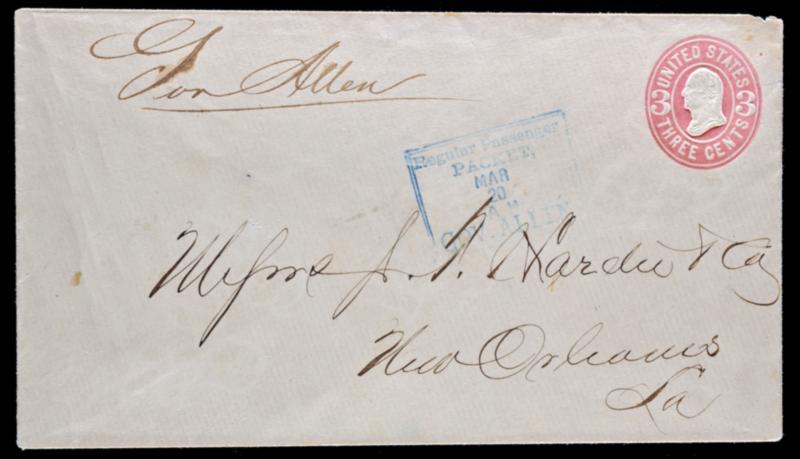 Gov Allen
UNITED STATES
3 3
THREE CENTS
Regular Passenger
PACKET,
MAR
20
A M
GOV. ALLEN
Messrs J. T. Hardie & Co
New Orleans
La